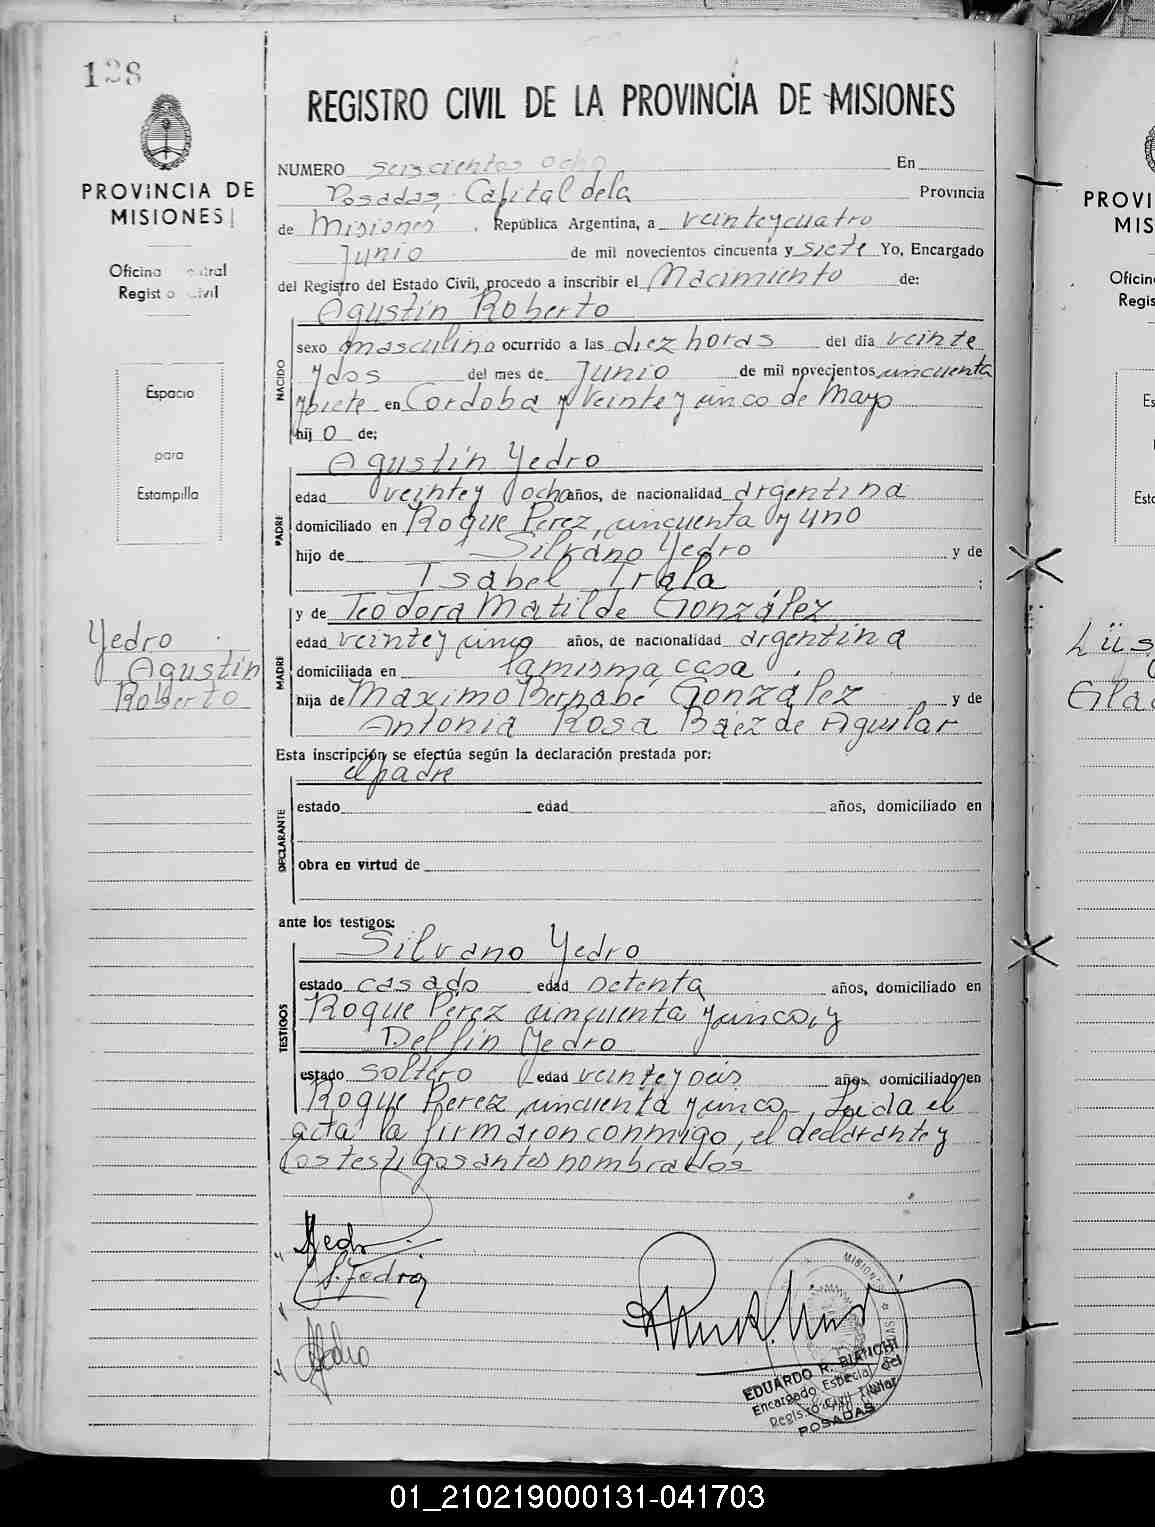 128
PROVINCIA DE
MISIONES
Oficina Central
Registro Civil
Espacio
para
Estampilla
Yedro
Agustín
Roberto
REGISTRO CIVIL DE LA PROVINCIA DE MISIONES
NUMERO seiscientos ocho En
Posadas, Capital dela Provincia
de Misiones, República Argentina, a veinteycuatro
Junio de mil novecientos cincuenta y siete Yo, Encargado
del Registro del Estado Civil, procedo a inscribir el Nacimiento de:
NACIDO
Agustín Roberto
sexo masculino ocurrido a las diez horas del día veinte
ydos del mes de Junio de mil novecientos cincuenta
ysiete en Cordoba y Veinte y cinco de Mayo
hij o de;
PADRE
Agustín Yedro
edad veintey ocho años, de nacionalidad argentina
domiciliado en Roque Perez, cincuenta y uno
hijo de Silvano Yedro y de
Isabel Irala ;
MADRE
y de Teodora Matilde González
edad veintey cinco años, de nacionalidad argentina
domiciliada en la misma casa
hija de Maximo Bernabé González y de
Antonia Rosa Báez de Aguilar
Esta inscripción se efectúa según la declaración prestada por:
DECLARANTE
el padre
estado edad años, domiciliado en
obra en virtud de
ante los testigos:
TESTIGOS
Silvano Yedro
estado casado edad setenta años, domiciliado en
Roque Pérez cincuenta ycinco, y
Delfín Yedro
estado soltero edad veinteyseis años, domiciliado en
Roque Perez cincuenta ycinco. Leida el
acta la firmaron conmigo, el declarante y
los testigos antes nombrados
Yedro
S. Yedro
Yedro
MISIONES
EDUARDO R. BIANCHI
Encargado Especial del
Registro Civil Titular
POSADAS
PROVI
MIS
Oficin
Regis
Es
Est
Lüs
Gla
01_210219000131-041703